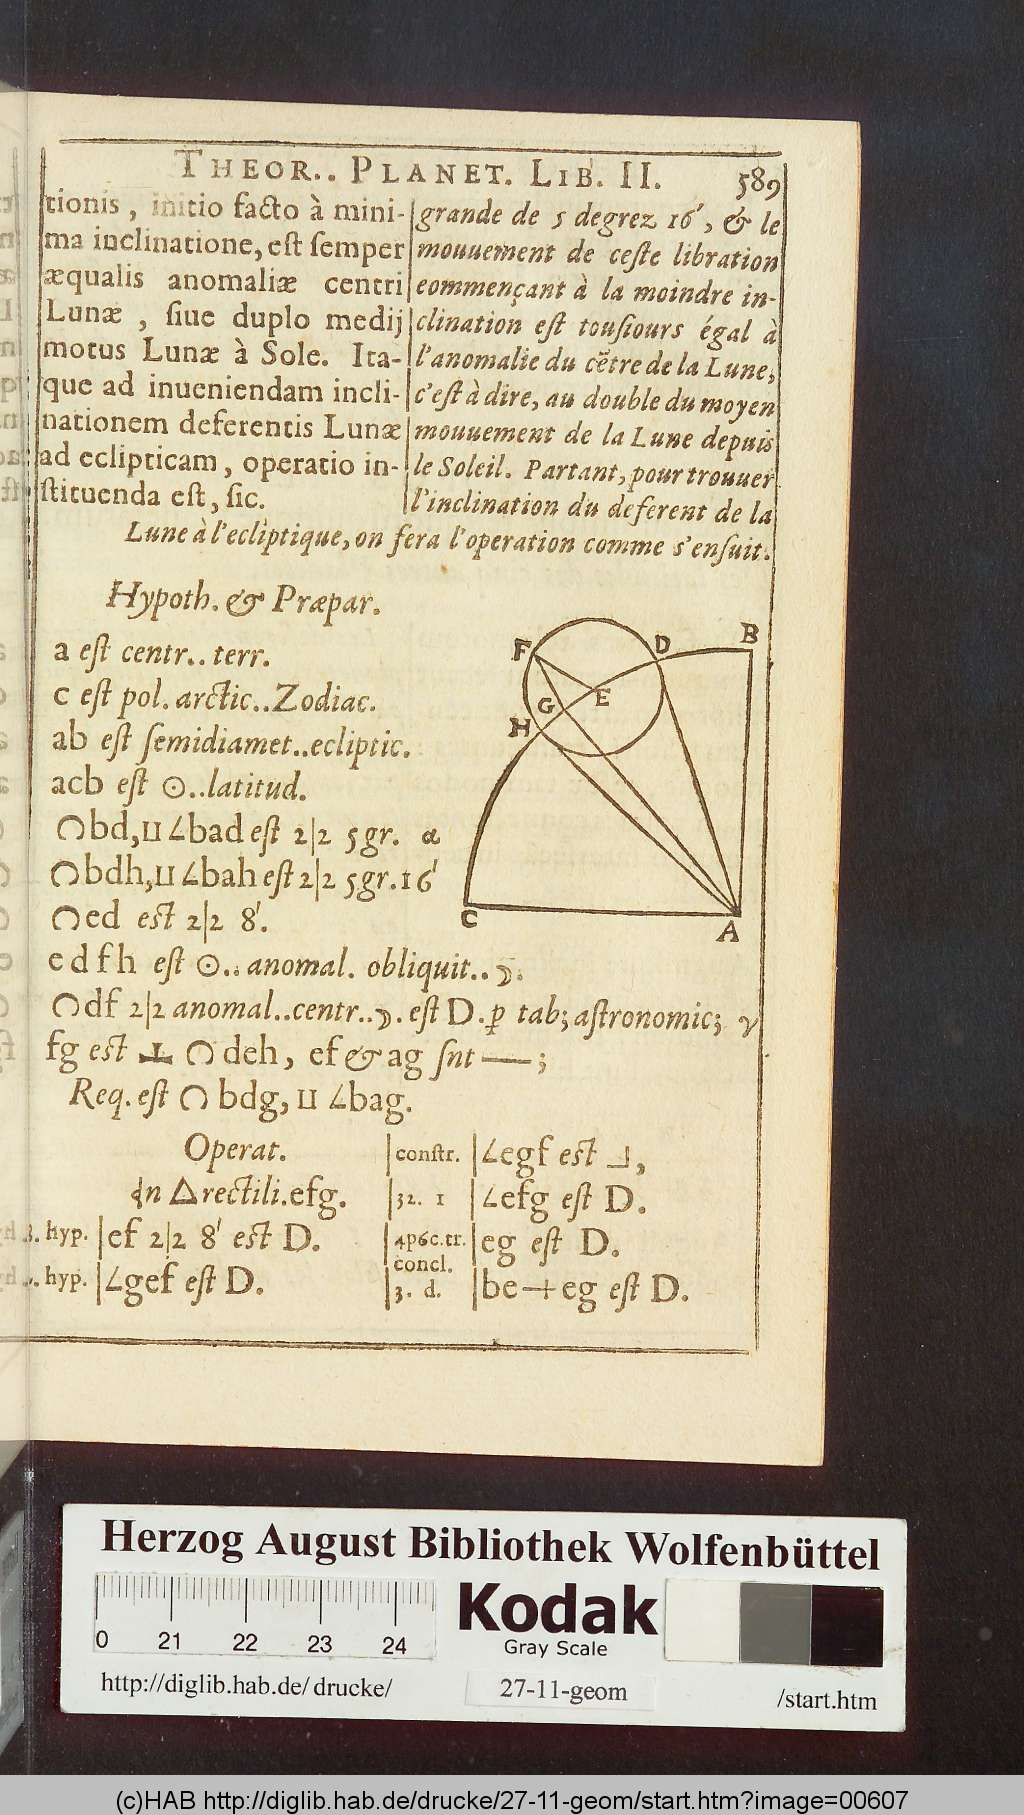 THEOR.. PLANET. LIB. II. 589
tionis, initio facto à mini-
ma inclinatione, est semper
æqualis anomaliæ centri
Lunæ , siue duplo medij
motus Lunæ à Sole. Ita-
que ad inueniendam incli-
nationem deferentis Lunæ
ad eclipticam, operatio in-
stituenda est, sic.
grande de 5 degrez 16', & le
mouuement de ceste libration
commençant à la moindre in-
clination est tousiours égal à
l'anomalie du cẽtre de la Lune,
c'est à dire, au double du moyen
mouuement de la Lune depuis
le Soleil. Partant, pour trouuer
l'inclination du deferent de la
Lune à l'ecliptique, on fera l'operation comme s'ensuit.
Hypoth. & Præpar.
a est centr.. terr.
c est pol. arctic.. Zodiac.
ab est semidiamet..ecliptic.
acb est ☉..latitud.
◠bd,ⵡ∠bad est 2|2 5gr. α
◠bdh,ⵡ∠bah est 2|2 5gr.16'
◠ed est 2|2 8'.
edfh est ☉.. anomal. obliquit..☽.
◠df 2|2 anomal..centr..☽. est D. p tab; astronomic; γ
fg est ⊥ ◠ deh, ef & ag snt —;
Req. est ◠ bdg, ⵡ ∠bag.
F D B
G E
H
C A
Operat.
in △rectili.efg.
3. hyp. |ef 2|2 8' est D.
hyp. |∠gef est D.
constr. |∠egf est ⅃,
32. 1 |∠efg est D.
4p6c.tr. |eg est D.
concl.
3. d. |be+eg est D.
Herzog August Bibliothek Wolfenbüttel
0 21 22 23 24
Kodak
Gray Scale
http://diglib.hab.de/ drucke/
27-11-geom
/start.htm
(c)HAB http://diglib.hab.de/drucke/27-11-geom/start.htm?image=00607